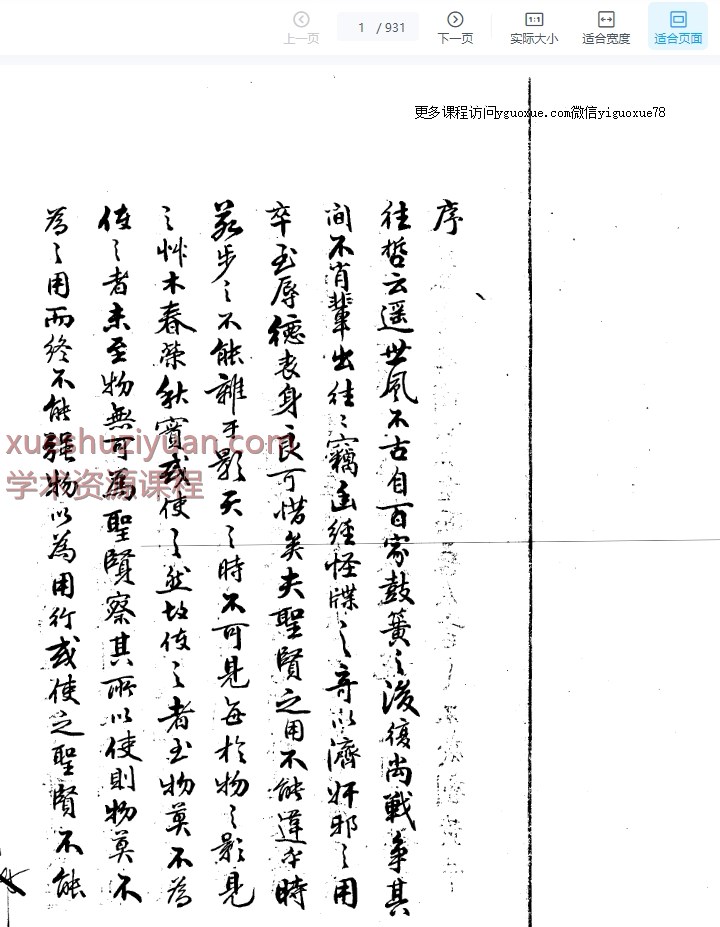 上一页
1 / 931
下一页
实际大小
适合宽度
适合页面
更多课程访问yguoxue.com微信yiguoxue78
序
往哲云遥世風不古自百家鼓簧之後復尚戰爭其
間不肖輩出往〻竊玉經怪牒之奇以濟奸邪之用
卒至辱德喪身良可惜矣夫聖賢之用不能違乎時
若步之不能離乎影天之時不可見每於物之影見
之艸木春榮秋實或使之然故使之者至物莫不為
使之者未至物無可為聖賢察其所以使則物莫不
為之用而終不能強物以為用行或使之聖賢不能
xueshuziyuan.com
学术资源课程